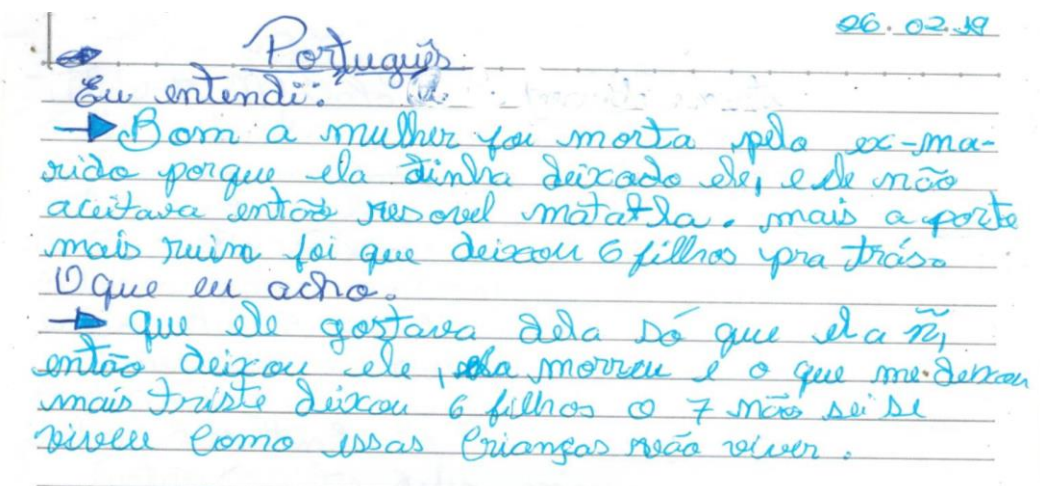 26.02.19
Português
Eu entendi:
Bom a mulher foi morta pelo ex-ma-
rido porque ela tinha deixado ele, e ele não
aceitava então resovel matatla. mais a parte
mais ruim foi que deixou 6 filhos pra trás.
O que eu acho.
que ele gostava dela só que ela ñ,
então deixou ele, ela morreu e o que me deixou
mais triste deixou 6 filhos o 7 não sei se
viveu como essas crianças vão viver.